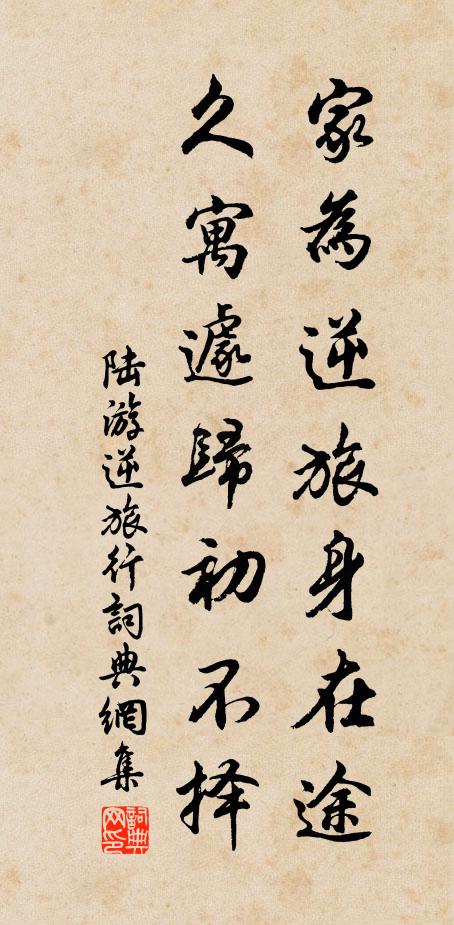 家為逆旅身在途
久寓遽歸初不择
陆游逆旅行詞典網集
詞典網印